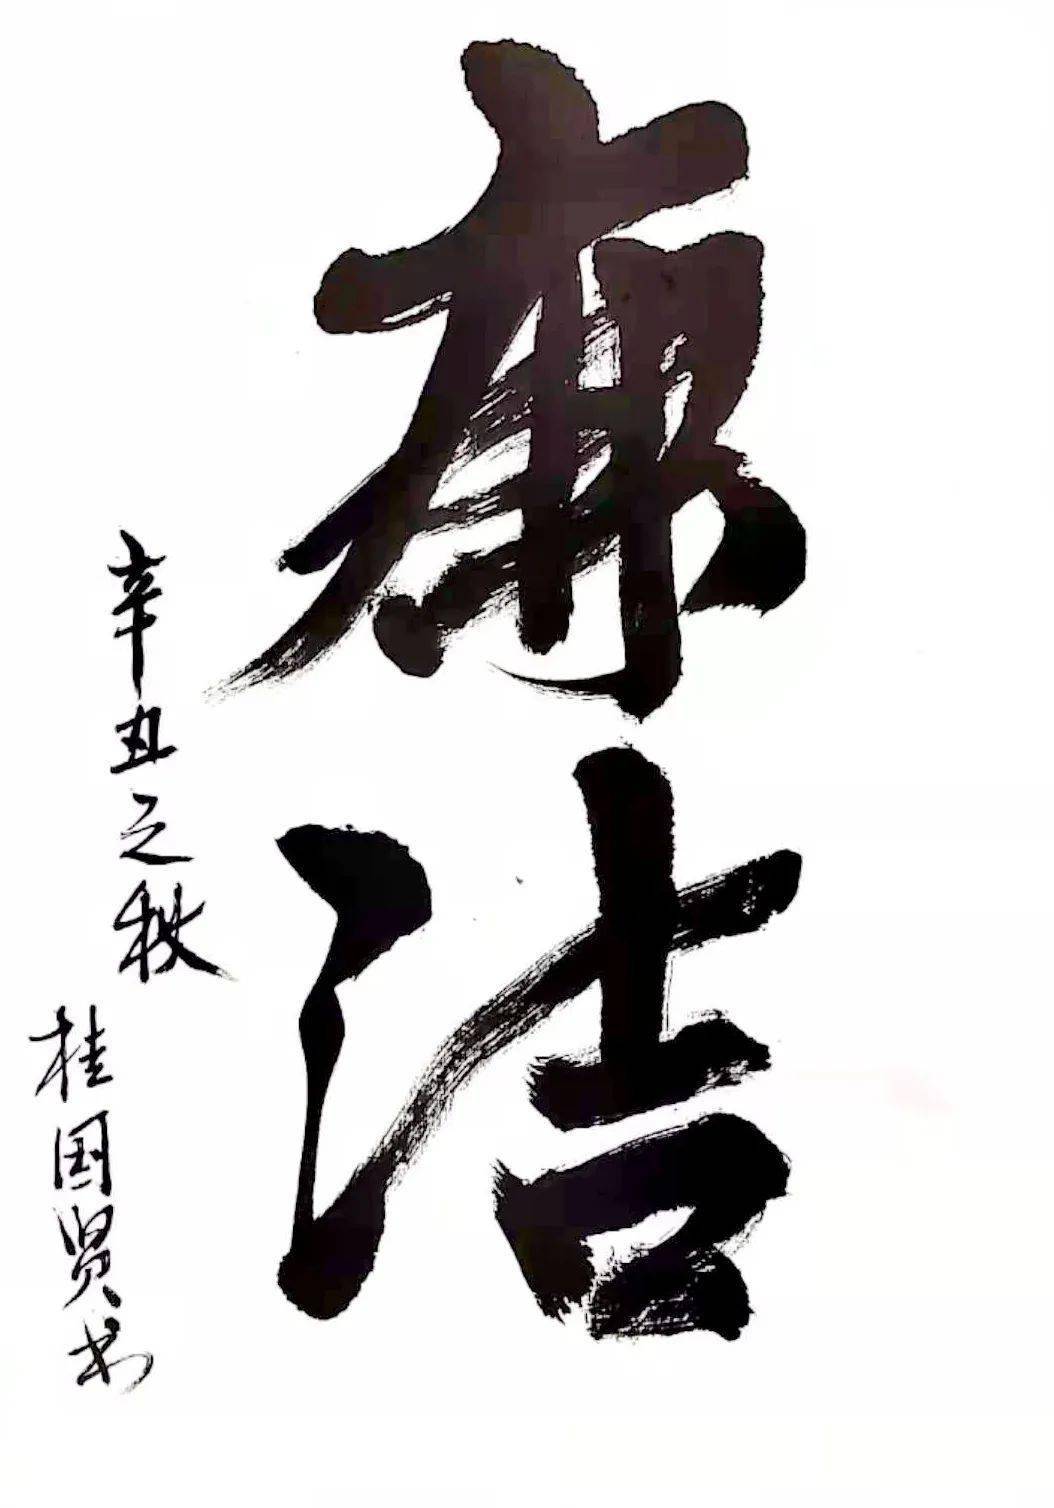 廉洁
辛丑之秋
桂国贤书